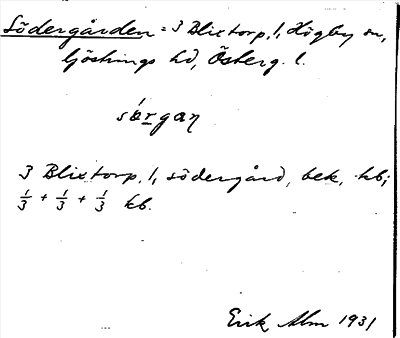 Södergården = 3 Blixtorp, 1, Högby sn,
Göstrings hd, Österg. l.
særgaɳ
3 Blixtorp, 1, södergård, bek. hb;
1/3 + 1/3 + 1/3 kb.
Erik Alm 1931